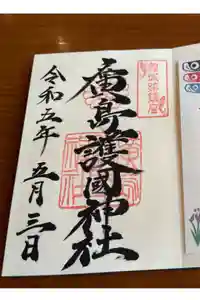 廣島護國神社
令和五年
五月三日